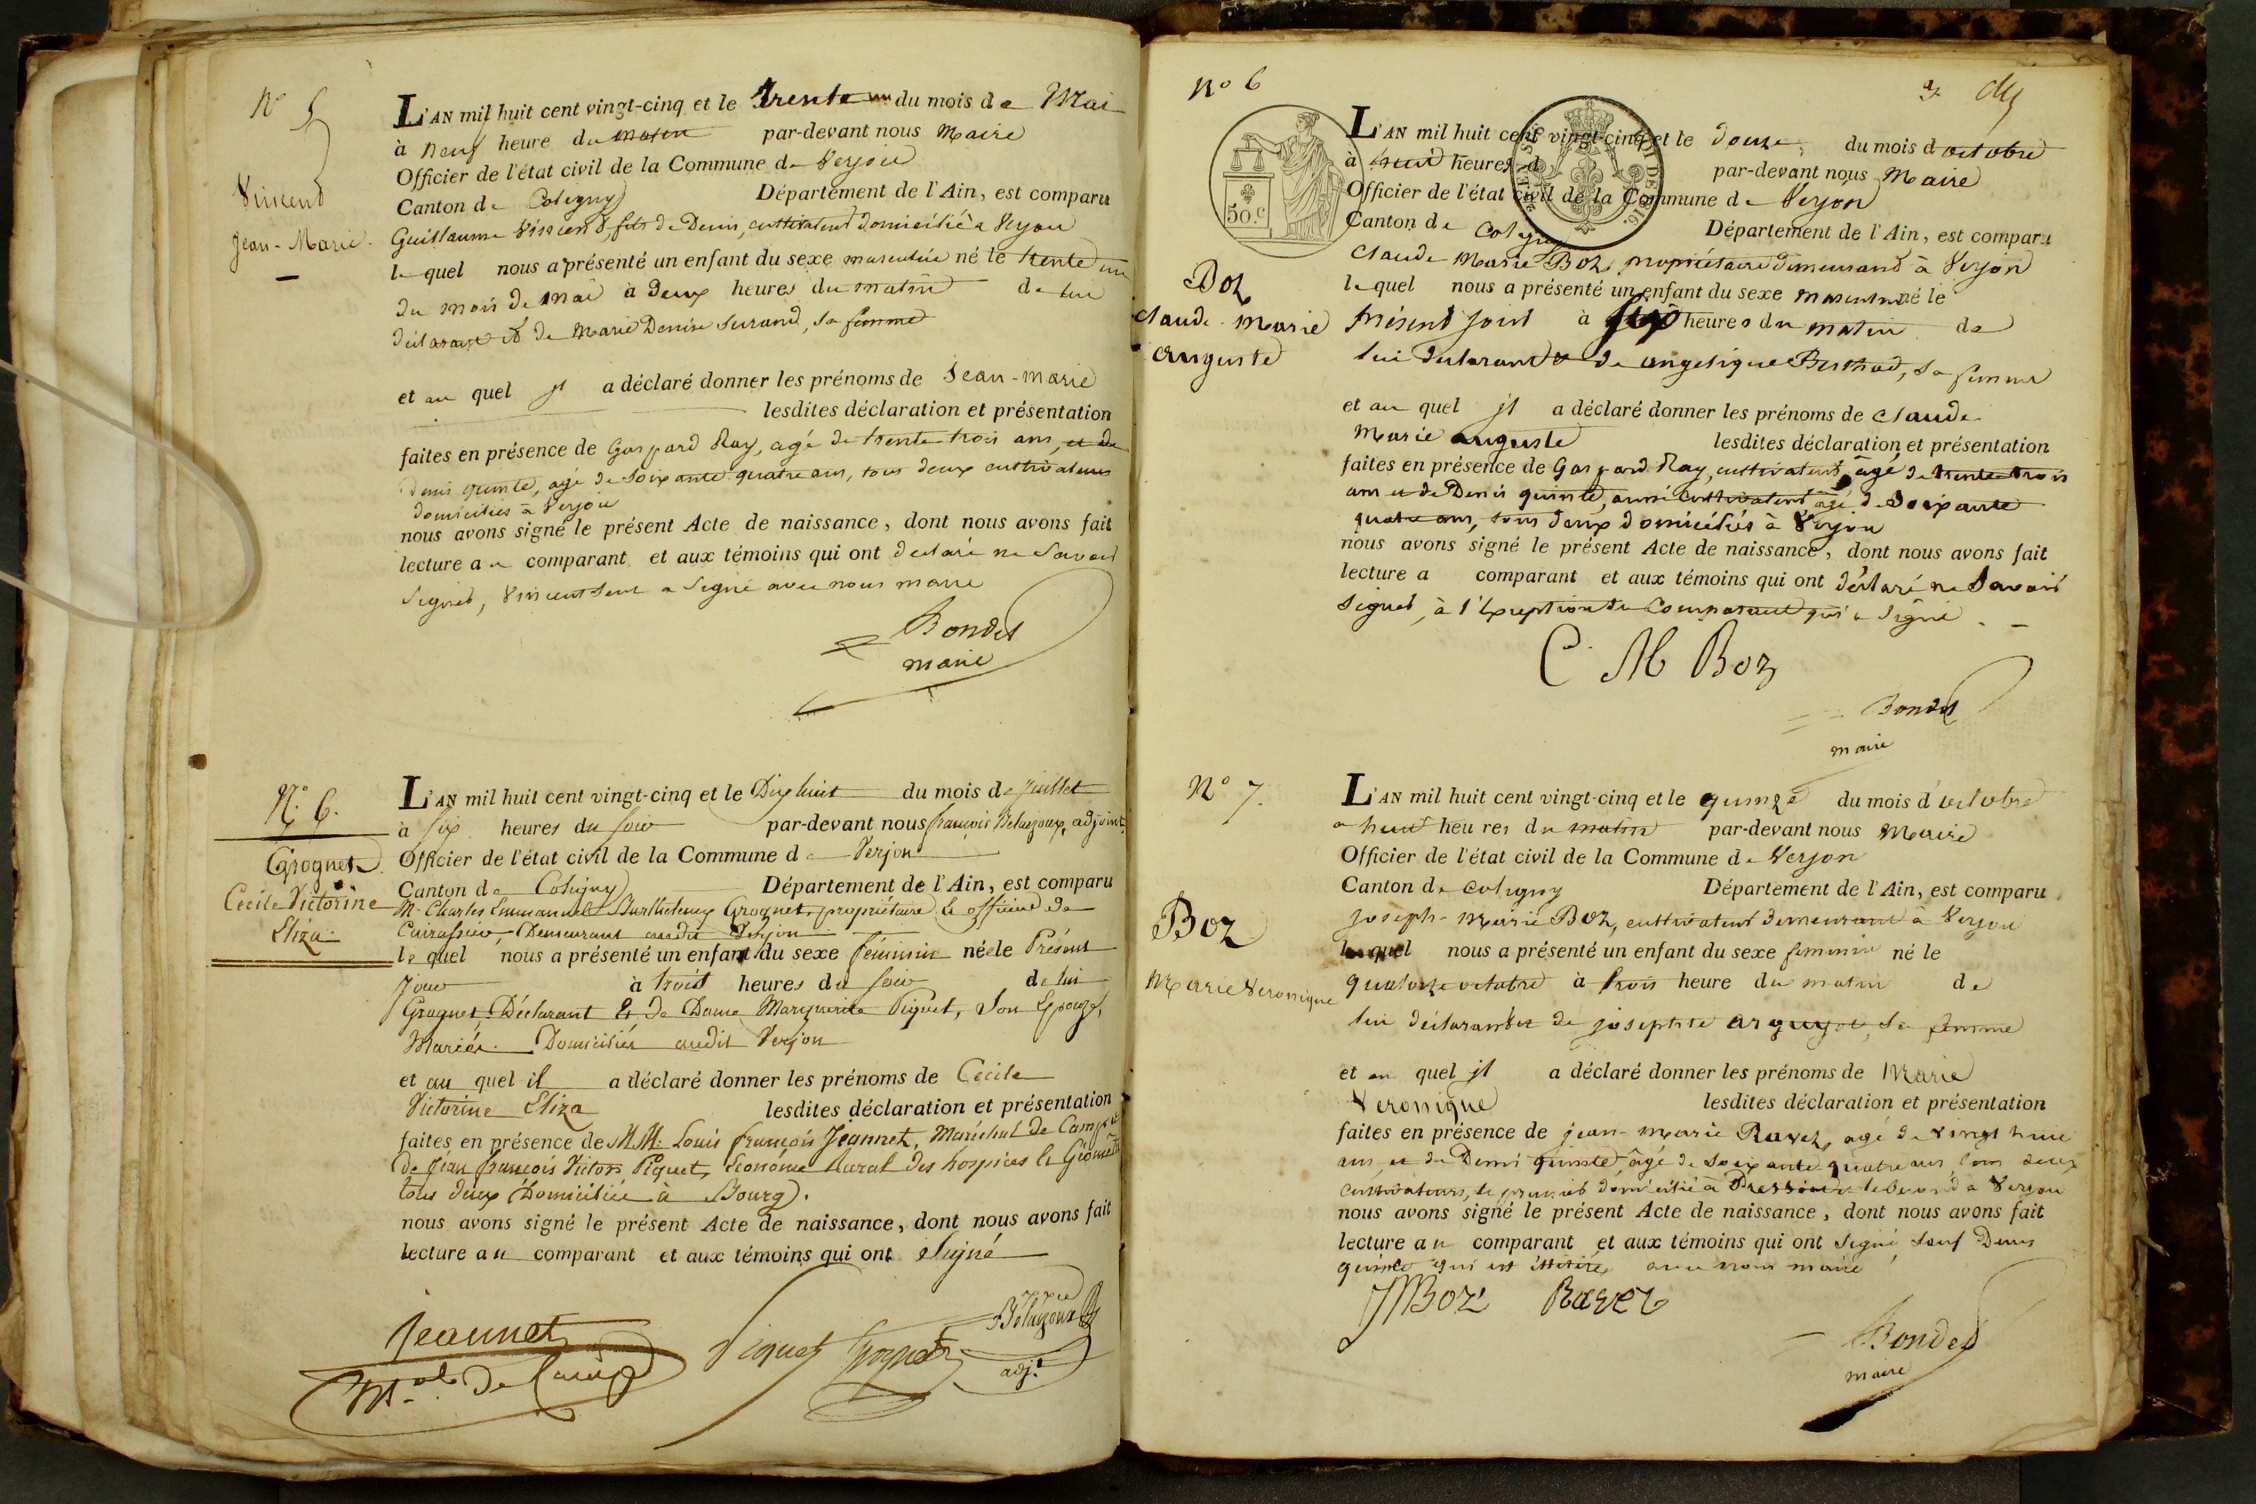 N° 5
Vincend
Jean-Marie
L'AN mil huit cent vingt-cinq et le trente un du mois de Mai
à neuf heure du matin par-devant nous Maire
Officier de l'état civil de la Commune de Verjon
Canton de Coligny Département de l'Ain, est comparu
Guillaume Vincend, fils de Denis, cultivateur domicilié à Verjon
lequel nous a présenté un enfant du sexe masculin né le trente un
du mois de mai à deux heures du matin de lui
déclarant et de Marie Denise, sa femme
et au quel il a déclaré donner les prénoms de Jean-Marie
lesdites déclaration et présentation
faites en présence de Gaspard Ray, agé de trente trois ans, et de
Denis quinte, agé de soixante quatre ans, tous deux cultivateurs
domiciliés à Verjon
nous avons signé le présent Acte de naissance, dont nous avons fait
lecture au comparant et aux témoins qui ont déclaré ne savoir
signer, Vincent seul a signé avec nous maire
Bondet
maire
N° 6.
Grognet
Cécile Victorine
Eliza
L'AN mil huit cent vingt-cinq et le Dix huit du mois de Juillet
à six heures du soir par-devant nous françois Beluzoux, adjoint
Officier de l'état civil de la Commune de Verjon
Canton de Coligny Département de l'Ain, est comparu
Mr Charles Emmanuel Barthelemy Grognet, propriétaire & officier de
Cuirassier, Demeurant audit Verjon
lequel nous a présenté un enfant du sexe féminin née le Présent
Jour à trois heures du soir de lui
Grognet, Déclarant & de Dame Marguerite Piquet, son Epouze,
Mariés Domiciliés audit Verjon
et au quel il a déclaré donner les prénoms de Cecile
Victorine Eliza lesdites déclaration et présentation
faites en présence de M.M. Louis françois Jeannet, Maréchal de Camp &
de Jean françois Victor Piquet, Econome Rural des hospices & Géomètre
tous deux Domiciliés à Bourg.
nous avons signé le présent Acte de naissance, dont nous avons fait
lecture au comparant et aux témoins qui ont signé
Jeannet
Mal de Camp
Piquet Grognet
Beluzoux
adj.t
N° 6
50.C
Boz
Claude-Marie
Auguste
L'AN mil huit cent vingt-cinq et le douze du mois d octobre
à huit heures d par-devant nous Maire
Officier de l'état civil de la Commune de Verjon
Canton de Coligny Département de l'Ain, est comparu
Claude Marie Boz, propriétaire demeurant à Verjon
lequel nous a présenté un enfant du sexe masculin né le
présent jour à sept heures du matin de
lui déclarant & de angelique, sa femme
et au quel il a déclaré donner les prénoms de Claude
Marie auguste lesdites déclaration et présentation
faites en présence de Gaspard Ray, cultivateur, âgé de trente trois
ans et de Denis quinte, aussi cultivateur âgé de soixante
quatre ans, tous deux domiciliés à Verjon
nous avons signé le présent Acte de naissance, dont nous avons fait
lecture a comparant et aux témoins qui ont déclaré ne savoir
signer, à l'exception du comparant qui a signé
C. M Boz
Bondet
maire
N° 7.
Boz
Marie Veronique
L'AN mil huit cent vingt-cinq et le quinze du mois d'octobre
a huit heures du matin par-devant nous Maire
Officier de l'état civil de la Commune de Verjon
Canton de Coligny Département de l'Ain, est comparu
joseph-marie Boz, cultivateur demeurant à Verjon
lequel nous a présenté un enfant du sexe feminin né le
quatorze octobre à trois heure du matin de
lui déclarant et de josephte arguyot, sa femme
et au quel il a déclaré donner les prénoms de Marie
Veronique lesdites déclaration et présentation
faites en présence de jean-marie Ravet, agé de vingt huit
ans, et de Denis quinte, âgé de soixante quatre ans, tous deux
cultivateurs, le premier domicilié à Pressiat le second à Verjon
nous avons signé le présent Acte de naissance, dont nous avons fait
lecture au comparant et aux témoins qui ont signé, sauf Denis
quinte qui est illitéré, avec nous maire
JMBoz Ravet
Bondet
maire